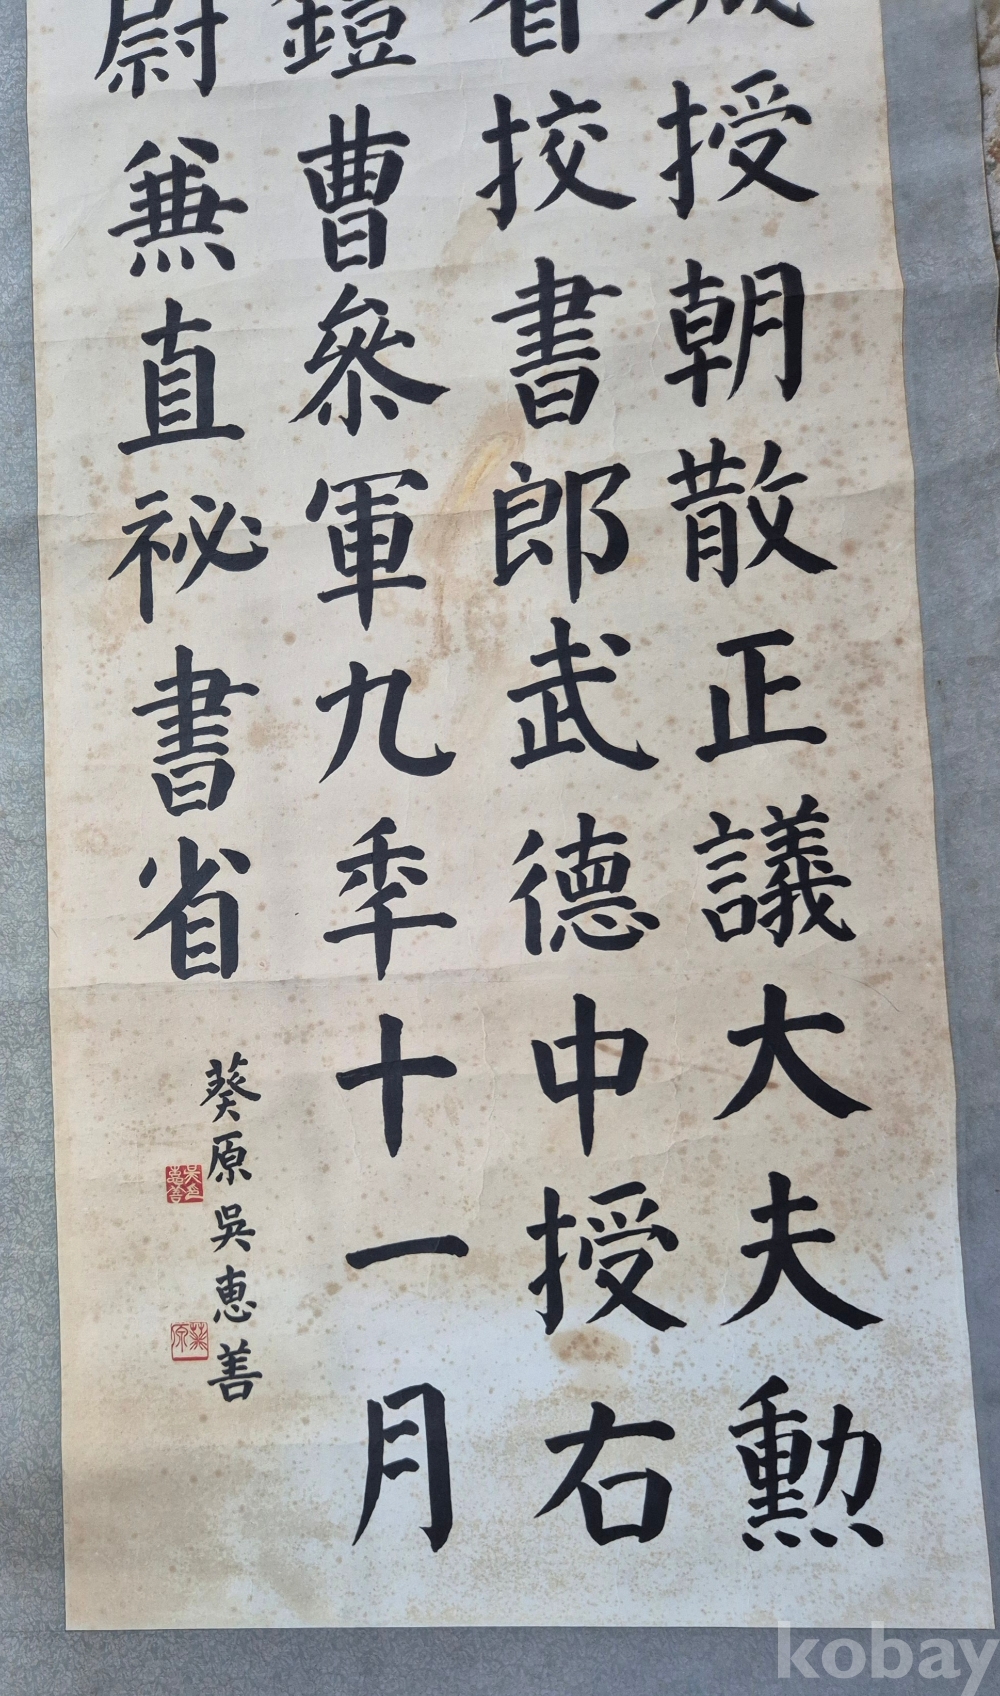 授朝散正議大夫勲
省挍書郎武德中授右
鎧曹叅軍九秊十一月
尉兼直祕書省
葵原吳惠善
kobay